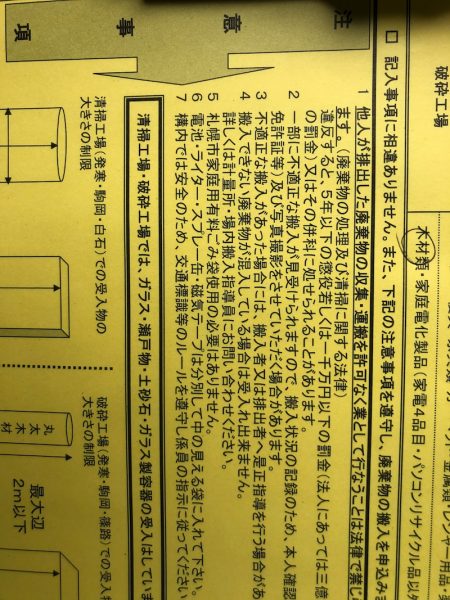 破砕工場
木材類・家庭電化製品(家電4品目・パソコンリサイクル品以外
□ 記入事項に相違ありません。また、下記の注意事項を遵守し、廃棄物の搬入を申込みま
注意事項
1 他人が排出した廃棄物の収集・運搬を許可なく業として行なうことは法律で禁じ
ます。(廃棄物の処理及び清掃に関する法律)
違反すると、5年以下の懲役若しくは一千万円以下の罰金(法人にあっては三億
の罰金)又はその併科に処せられることがあります。
2 一部に不適正な搬入が見受けられますので、搬入状況の記録のため、本人確認
免許証等)及び写真撮影をさせていただく場合があります。
3 不適正な搬入があった場合には、搬入者又は排出者へ是正指導を行う場合があ
4 搬入できない廃棄物が混入している場合は受入れ出来ません。
詳しくは計量所・場内搬入指導員にお問い合わせください。
5 札幌市家庭用有料ごみ袋使用の必要はありません。
6 電池・ライター・スプレー缶・磁気テープは分別して中の見える袋に入れて下さい。
7 構内では安全のため、交通標識等のルールを遵守し係員の指示に従ってください
清掃工場・破砕工場では、ガラス・瀬戸物・土砂石・ガラス製容器の受入はしていま
清掃工場(発寒・駒岡・白石)での受入物の
大きさの制限
破砕工場(発寒・駒岡・篠路)での受入物
大きさの制限
丸太木材
最大辺
2m以下